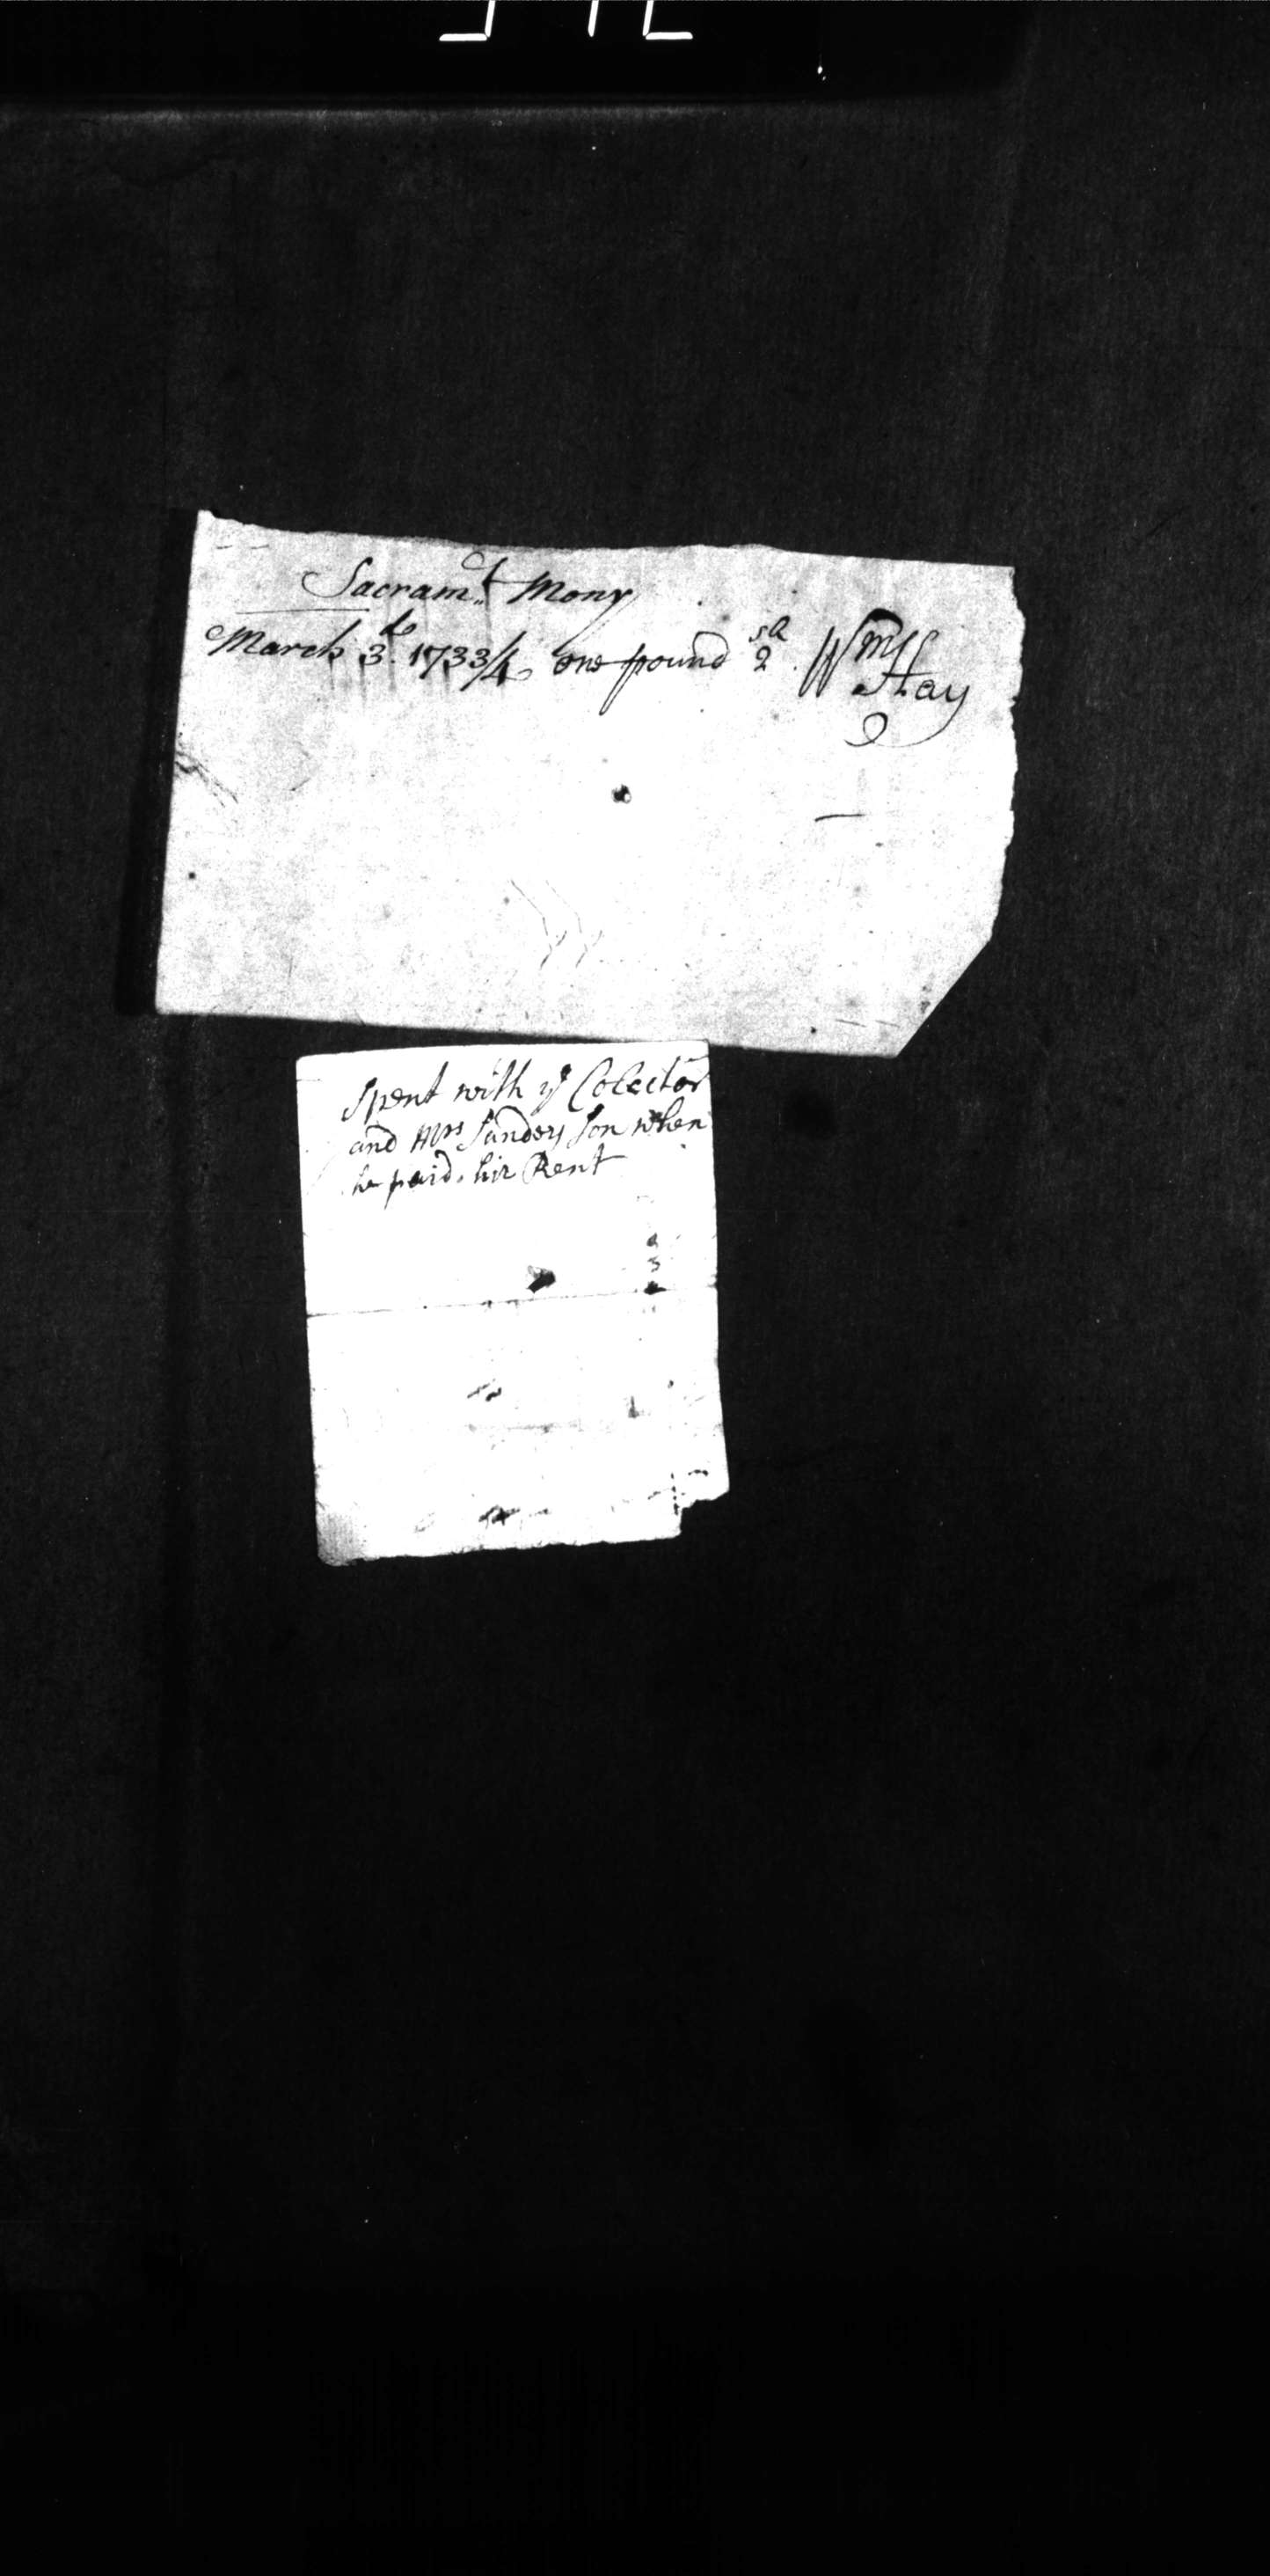 Sacram:t Mony
March 3d. 1733/4 one pound 2s. Wm
Hay
Spent with ye Colector
and Mrs Sanders Son when
he paid his Rent